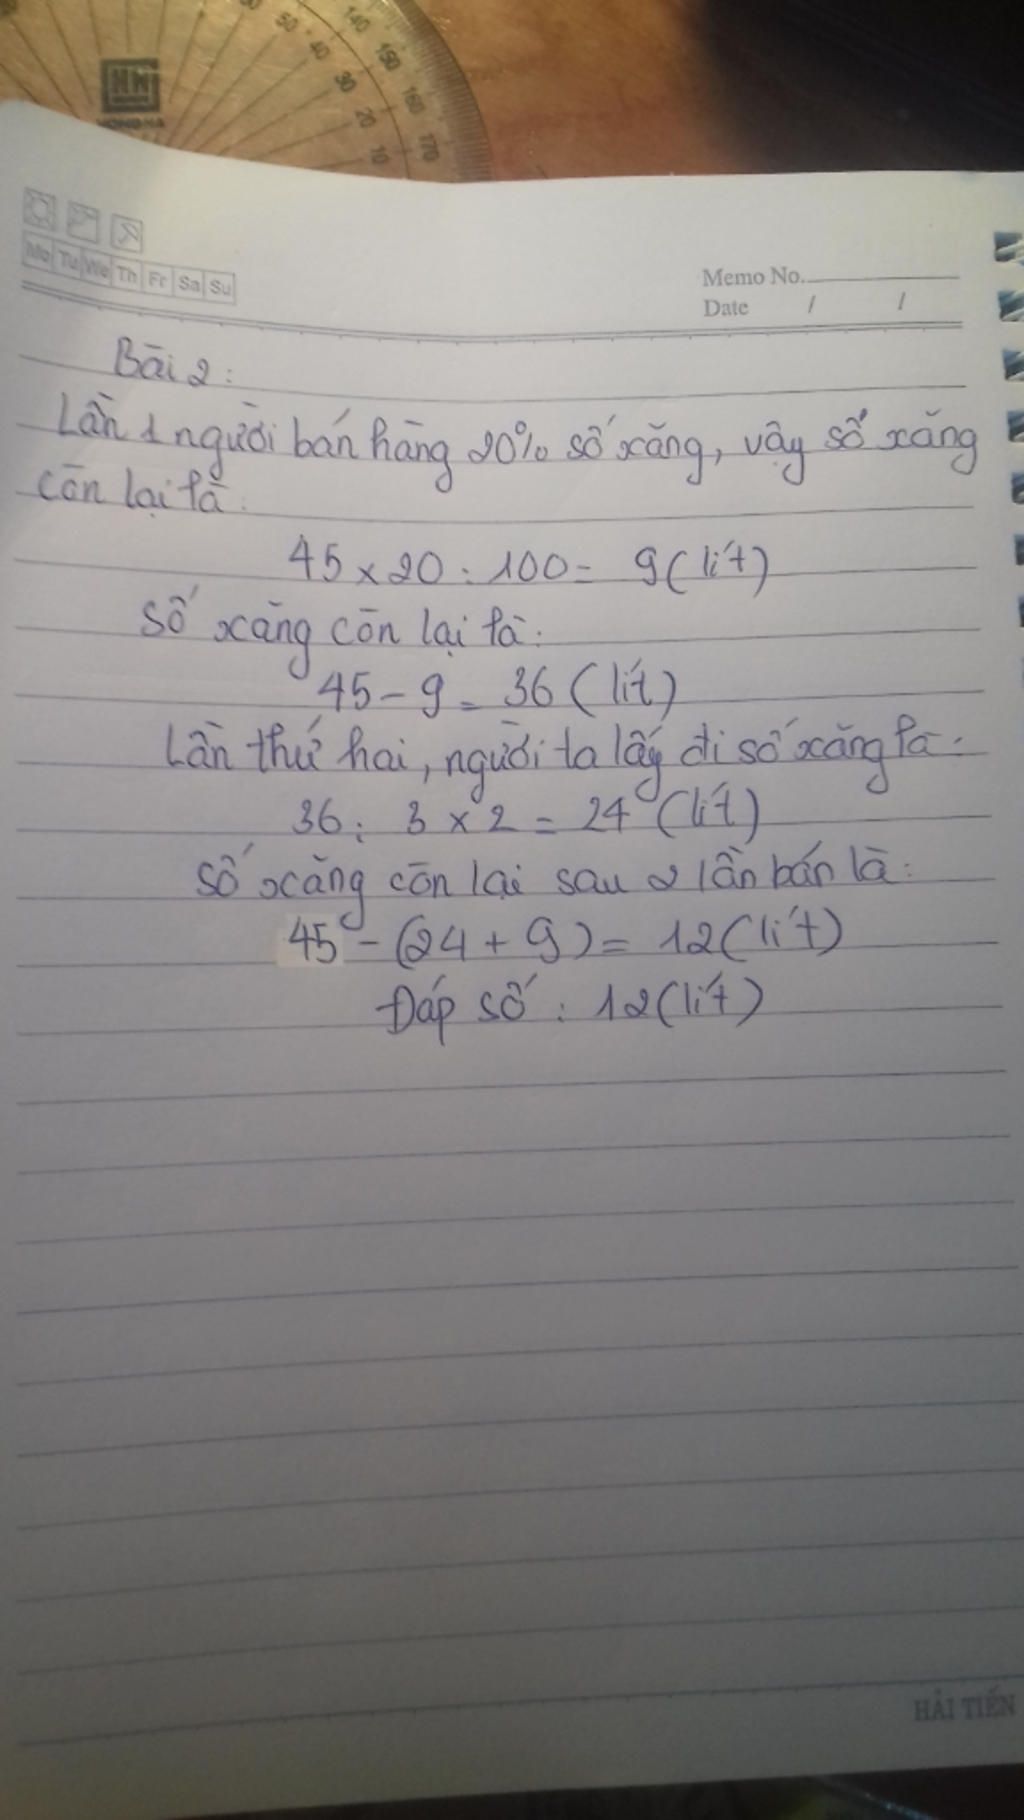 50 50 40 30 20 10
140 150 160 170
HN
HONGHA
Mo Tu We Th Fr Sa Su
Memo No.
Date / /
Bài 2:
Lần 1 người bán hàng 20% số xăng, vậy số xăng
còn lại là:
45 x 20 : 100 = 9 (lít)
Số xăng còn lại là:
45 - 9 = 36 (lít)
Lần thứ hai, người ta lấy đi số xăng là:
36 : 3 x 2 = 24 (lít)
Số xăng còn lại sau 2 lần bán là:
45 - (24 + 9) = 12 (lít)
Đáp số : 12 (lít)
HẢI TIẾN